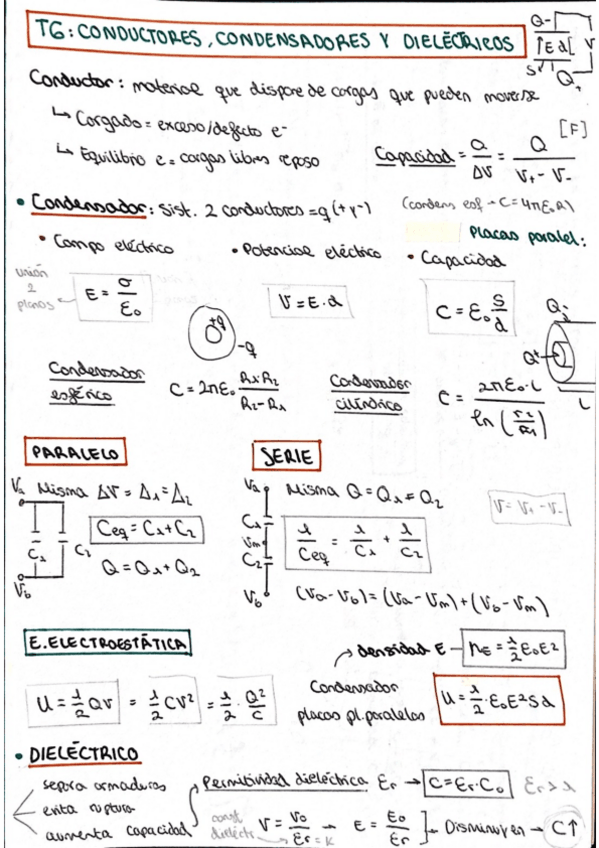 T6: CONDUCTORES, CONDENSADORES Y DIELÉCTRICOS
Q- E d V S Q+
Conductor: material que dispone de cargas que pueden moverse
↳ Cargado = exceso/defecto e-
↳ Equilibrio e = cargas libres reposo
Capacidad = Q/ΔV = Q/(V+ - V-) [F]
• Condensador: sist. 2 conductores = q (+ y -) (condens esf → C = 4πε₀R)
Placas paralel:
• Campo eléctrico • Potencial eléctrico • Capacidad
unión 2 planos ← E = σ/ε₀ V = E·d C = ε₀ S/d
+q -q
Condensador esférico C = 2πε₀ R₁·R₂/(R₂-R₁) Condensador cilíndrico C = 2πε₀·L/ln(r₂/R₁) Q- Q+ L
PARALELO SERIE
Va Misma ΔV = Δ₁ = Δ₂ Va Misma Q = Q₁ = Q₂ V = V+ - V-
Ceq = C₁ + C₂ 1/Ceq = 1/C₁ + 1/C₂
C₁ C₂ C₁ Vm C₂
Q = Q₁ + Q₂
Vb Vb (Va - Vb) = (Va - Vm) + (Vb - Vm)
E. ELECTROESTÁTICA
→ densidad E - nE = 1/2 ε₀E²
U = 1/2 QV = 1/2 CV² = 1/2 · Q²/C Condensador placas pl. paralelas U = 1/2 · ε₀E²Sd
• DIELÉCTRICO
separa armaduras
evita ruptura
aumenta capacidad
Permitividad dieléctrica εr → C = εr·C₀ εr > 1
const dieléctr V = V₀/εr = K → E = E₀/εr ] - Disminuyen → C↑